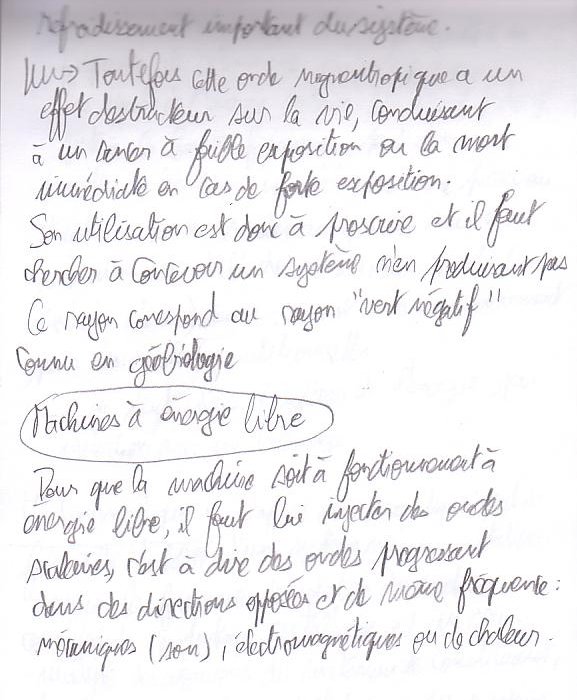 refroidissement important du système.
Toutefois cette onde magnentropique a un
effet destructeur sur la vie, conduisant
à un cancer à faible exposition ou la mort
immédiate en cas de forte exposition.
Son utilisation est donc à proscrire et il faut
chercher à concevoir un système n'en produisant pas
Ce rayon correspond au rayon "vert négatif"
connu en géobiologie
Machines à énergie libre
Pour que la machine soit à fonctionnement à
énergie libre, il faut lui injecter des ondes
scalaires, c'est à dire des ondes progressant
dans des directions opposées et de même fréquence :
mécaniques (son), électromagnétiques ou de chaleur.